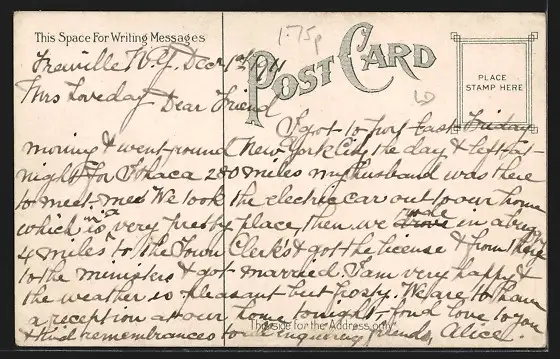 This Space For Writing Messages
1.75p
POST CARD
LD
PLACE
STAMP HERE
Freeville N.Y. Dec 1st 1911
Mrs Loveday Dear Friend
I got to port last Friday
morning & went round New York City the day & left Fri-
night for Ithaca 280 miles my husband was there
to meet me We took the electric car out to our home
which is in a very pretty place, then we rode in a buggy
4 miles to the Town Clerk's & got the license & from there
to the ministers & got married. I am very happy &
the weather is pleasant but frosty. We are to have
a reception at our home tonight - fond love to you
& kind remembrances to all enquiring friends, Alice.
The side for the Address only